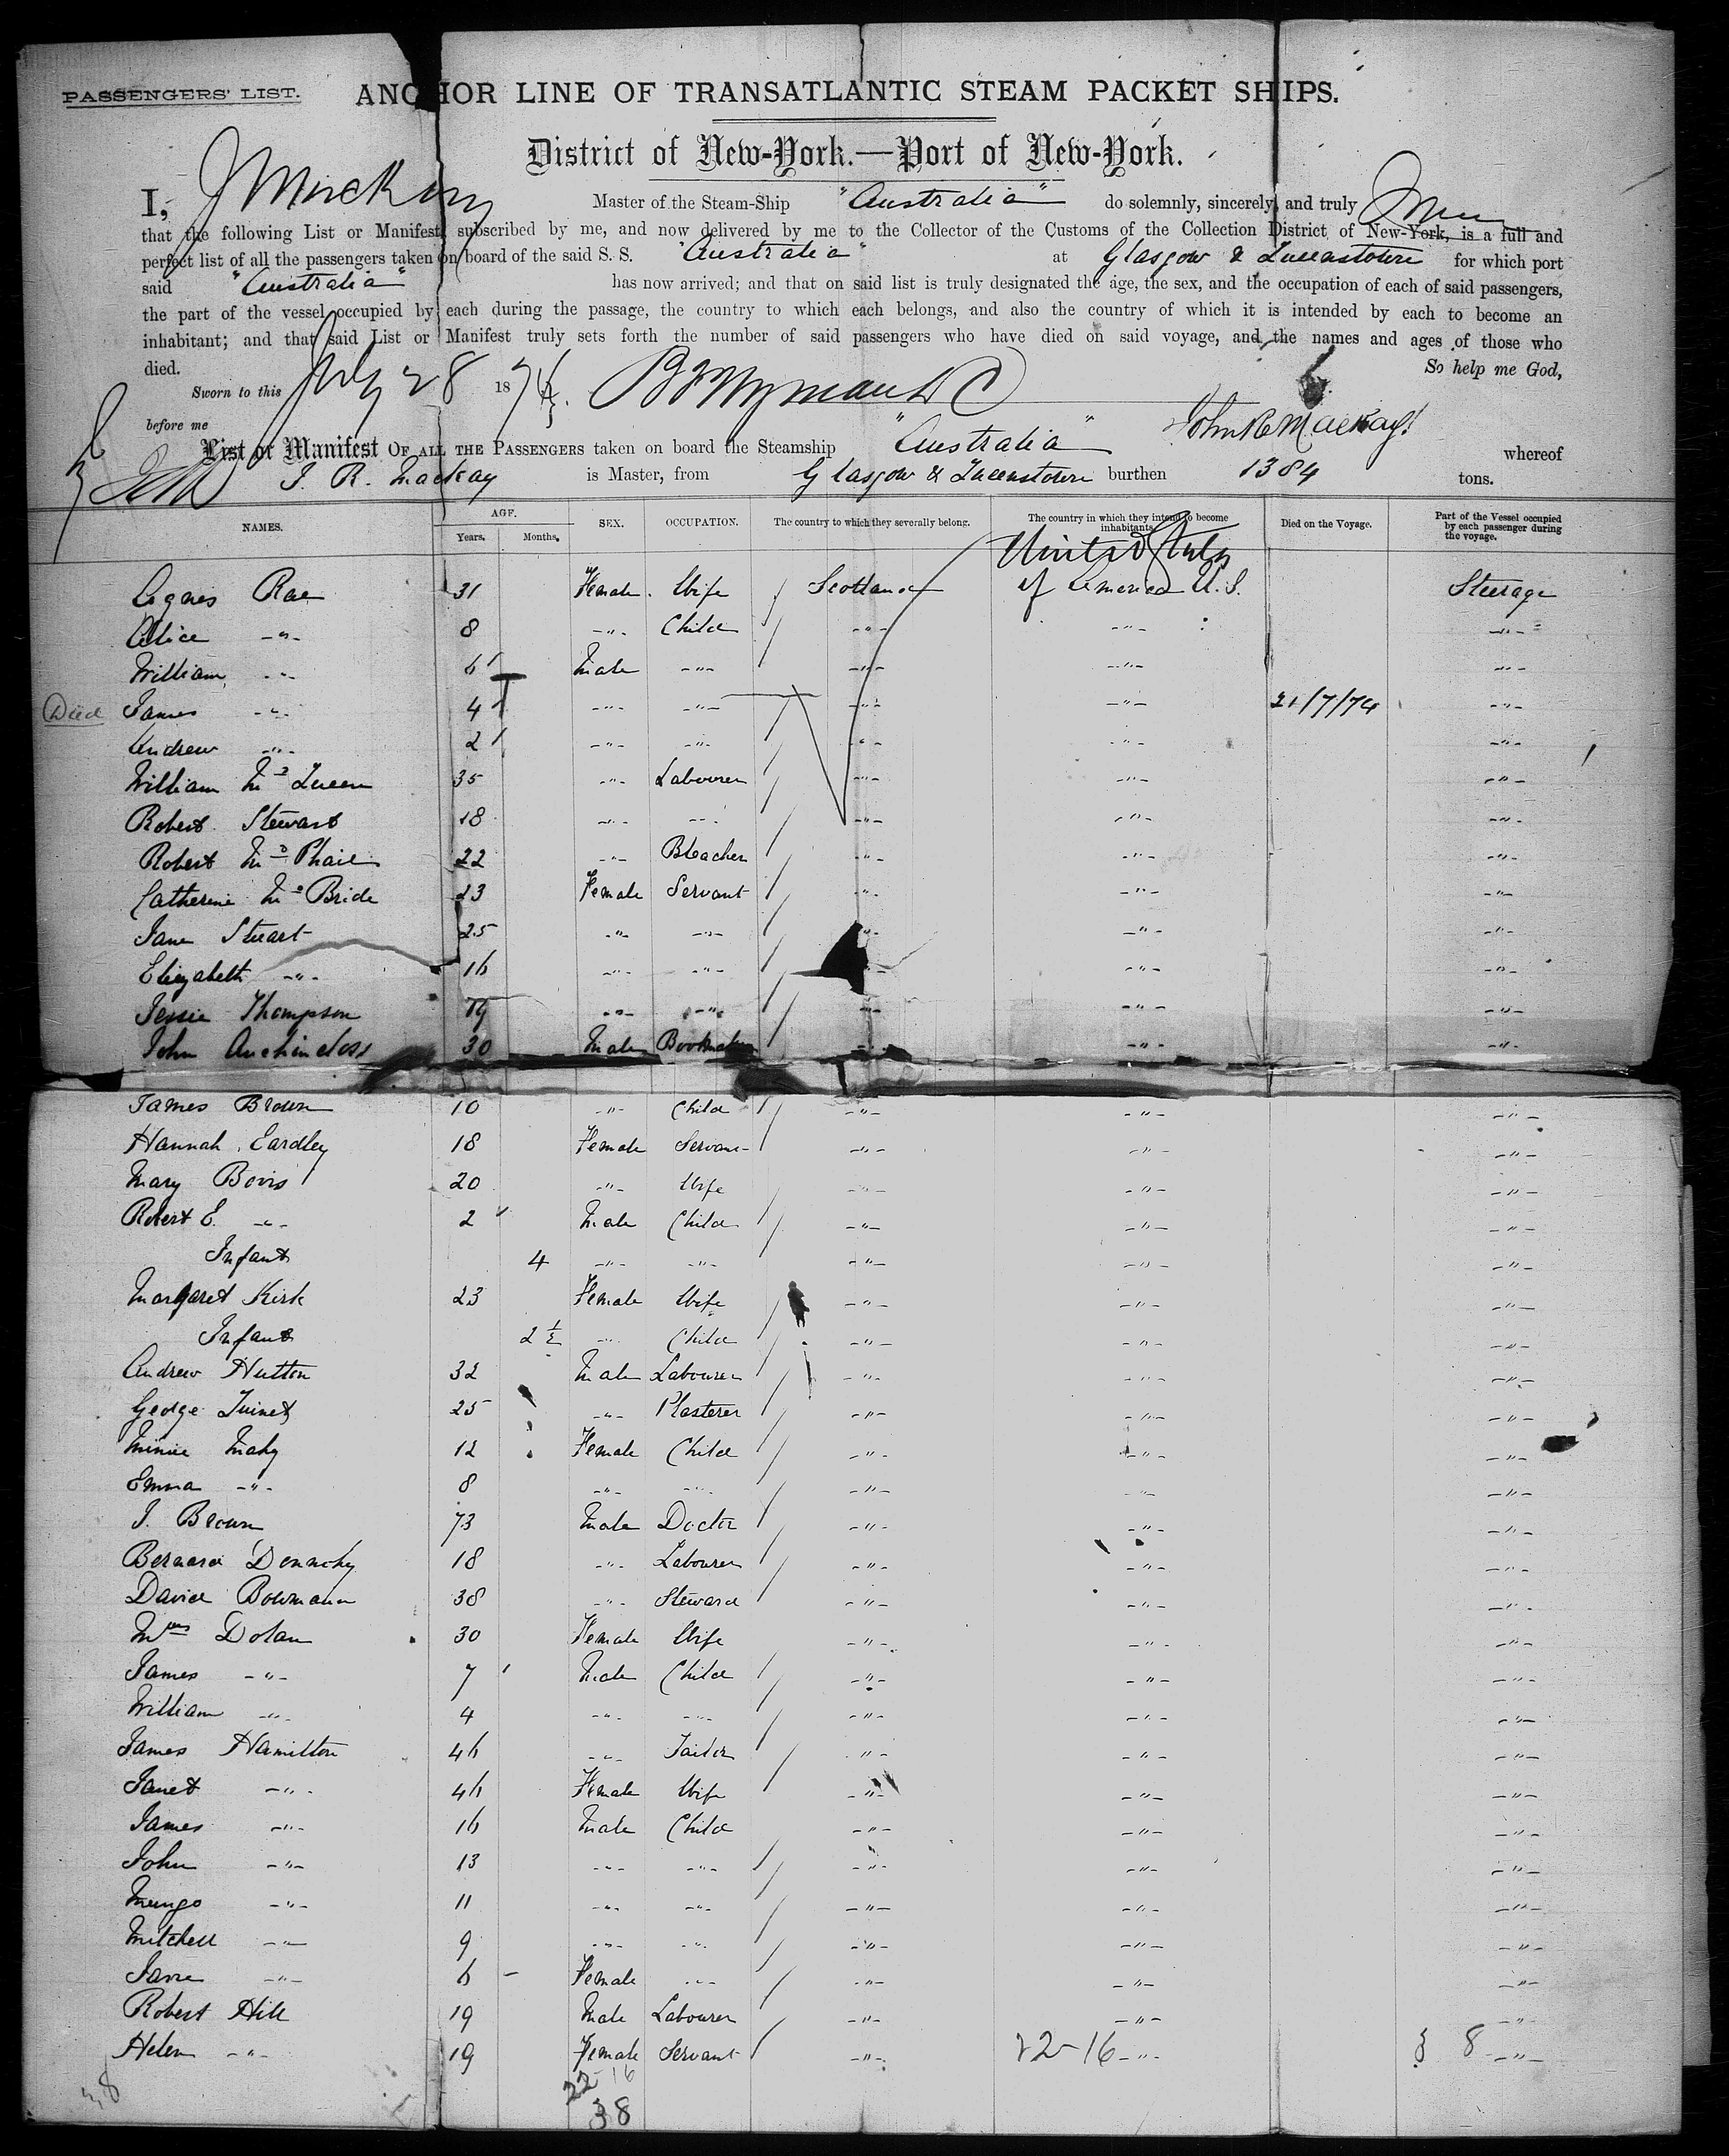 PASSENGERS' LIST.
ANCHOR LINE OF TRANSATLANTIC STEAM PACKET SHIPS.
District of New-York.—Port of New-York.
I, Master of the Steam-Ship "Australia" do solemnly, sincerely, and truly
that the following List or Manifest subscribed by me, and now delivered by me to the Collector of the Customs of the Collection District of New-York, is a full and
perfect list of all the passengers taken on board of the said S. S. "Australia" at Glasgow & Queenstown for which port
said "Australia" has now arrived; and that on said list is truly designated the age, the sex, and the occupation of each of said passengers,
the part of the vessel occupied by each during the passage, the country to which each belongs, and also the country of which it is intended by each to become an
inhabitant; and that said List or Manifest truly sets forth the number of said passengers who have died on said voyage, and the names and ages of those who
died. So help me God,
Sworn to this July 28 1874
before me John R Mackay
List or Manifest OF ALL THE PASSENGERS taken on board the Steamship "Australia" whereof
J. R. Mackay is Master, from Glasgow & Queenstown burthen 1384 tons.
NAMES. AGE. Years. Months. SEX. OCCUPATION. The country to which they severally belong. The country in which they intend to become inhabitants. Died on the Voyage. Part of the Vessel occupied by each passenger during the voyage.
United States
Agnes Rae 31 Female Wife Scotland of America U.S. Steerage
Alice -"- 8 -"- Child -"- -"- -"-
William -"- 6 Male -"- -"- -"- -"-
Died James -"- 4 -"- -"- -"- -"- 21/7/74 -"-
Andrew -"- 2 -"- -"- -"- -"- -"-
William McQueen 35 -"- Labourer -"- -"- -"-
Robert Stewart 18 -"- -"- -"- -"- -"-
Robert McPhail 22 -"- Bleacher -"- -"- -"-
Catherine McBride 23 Female Servant -"- -"- -"-
Jane Stuart 25 -"- -"- -"- -"- -"-
Elizabeth -"- 16 -"- -"- -"- -"- -"-
Jessie Thompson 19 -"- -"- -"- -"- -"-
John Auchincloss 30 Male -"- -"- -"-
James Brown 10 -"- Child -"- -"- -"-
Hannah Eardley 18 Female Servant -"- -"- -"-
Mary Bovis 20 -"- Wife -"- -"- -"-
Robert E. -"- 2 Male Child -"- -"- -"-
Infant 4 -"- -"- -"- -"- -"-
Margaret Kirk 23 Female Wife -"- -"- -"-
Infant 2 ½ -"- Child -"- -"- -"-
Andrew Hutton 32 Male Labourer -"- -"- -"-
George 25 -"- Plasterer -"- -"- -"-
Minnie Mahy 12 Female Child -"- -"- -"-
Emma -"- 8 -"- -"- -"- -"- -"-
J. Brown 73 Male Doctor -"- -"- -"-
Bernard Donnachy 18 -"- Labourer -"- -"- -"-
David Bowmann 38 -"- Steward -"- -"- -"-
Mrs Dolan 30 Female Wife -"- -"- -"-
James -"- 7 Male Child -"- -"- -"-
William -"- 4 -"- -"- -"- -"- -"-
James Hamilton 46 -"- Tailor -"- -"- -"-
Janet -"- 46 Female Wife -"- -"- -"-
James -"- 16 Male Child -"- -"- -"-
John -"- 13 -"- -"- -"- -"- -"-
Mungo -"- 11 -"- -"- -"- -"- -"-
Mitchell -"- 9 -"- -"- -"- -"- -"-
Jane -"- 6 Female -"- -"- -"- -"-
Robert Hill 19 Male Labourer -"- -"- -"-
Helen -"- 19 Female Servant -"- 22-16 -"- 8 -"-
22 16
38
38